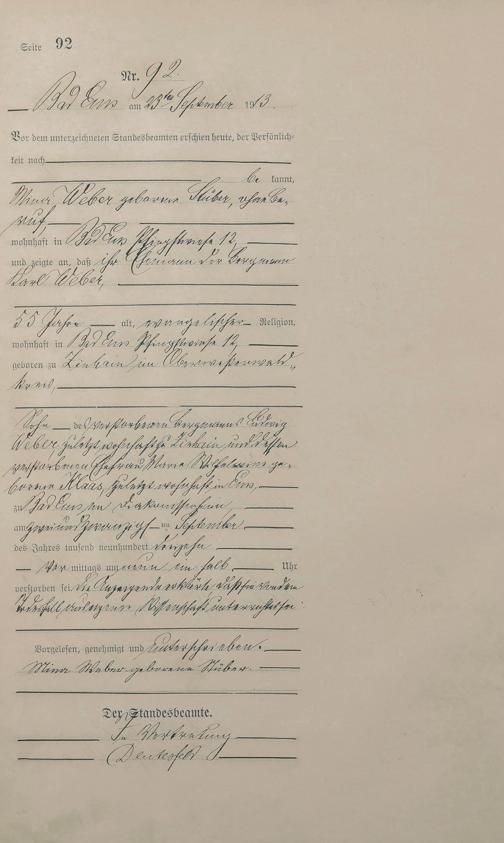 Seite 92
Nr. 92.
Bad Ems am 23ten September 1913.
Vor dem unterzeichneten Standesbeamten erschien heute, der Persönlich-
keit nach
be kannt,
Mina Weber geborene Stüber, ohne Be-
ruf,
wohnhaft in Bad Ems Pfingstwiese 12,
und zeigte an, daß ihr Ehemann der Bergmann
Karl Weber,
55 Jahre alt, evangelischer Religion,
wohnhaft in Bad Ems Pfingstwiese 12,
geboren zu Zinhain im Oberwesterwald-
kreis,
Sohn des verstorbenen Bergmanns Ludwig
Weber, zuletzt wohnhaft zu Zinhain, und dessen
verstorbenen Ehefrau Marie Wilhelmine ge-
borene Klaas, zuletzt wohnhaft in Ems,
zu Bad Ems, im Diakonissenheim,
am zweiundzwanzigsten September
des Jahres tausend neunhundert dreizehn
Vor mittags um neun ein halb Uhr
verstorben sei. Die Anzeigende erklärte, daß sie von dem
Todesfall aus eigener Wissenschaft unterrichtet sei.
Vorgelesen, genehmigt und unterschrieben.
Mina Weber geborene Stüber.
Der Standesbeamte.
In Vertretung